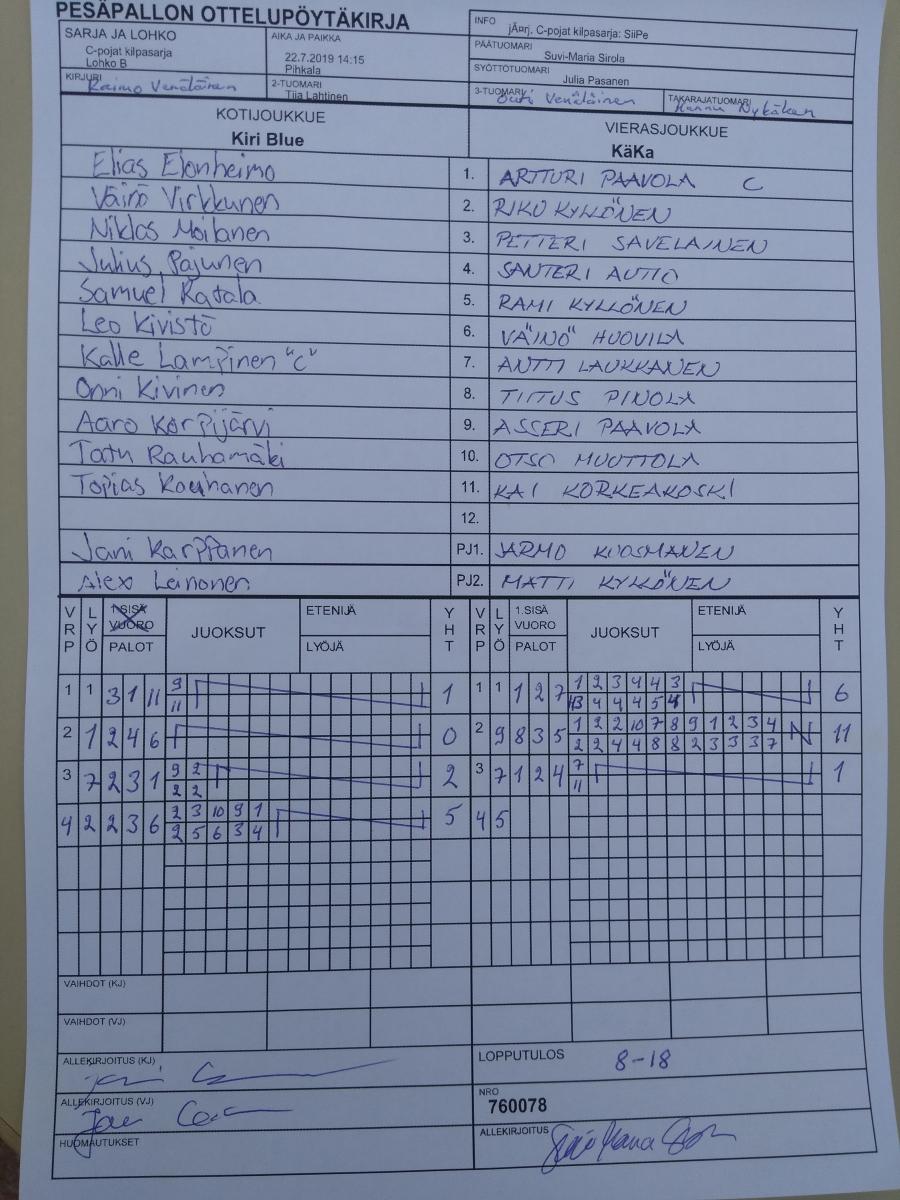 PESÄPALLON OTTELUPÖYTÄKIRJA
SARJA JA LOHKO
C-pojat kilpasarja
Lohko B
AIKA JA PAIKKA
22.7.2019 14:15
Pihkala
INFO
jÃ¤rj, C-pojat kilpasarja: SiiPe
PÄÄTUOMARI
Suvi-Maria Sirola
SYÖTTÖTUOMARI
Julia Pasanen
KIRJURI
Raimo Venäläinen
2-TUOMARI
Tiia Lahtinen
3-TUOMARI
Outi Venäläinen
TAKARAJATUOMARI
Hannu Nykäken
KOTIJOUKKUE
Kiri Blue
VIERASJOUKKUE
KäKa
Elias Elonheimo 1. ARTTURI PAAVOLA C
Väinö Virkkunen 2. RIKU KYLLÖNEN
Niklas Moilanen 3. PETTERI SAVELAINEN
Julius Pajunen 4. SANTERI AUTIO
Samuel Katala 5. RAMI KYLLÖNEN
Leo Kivistö 6. VÄINÖ HUOVILA
Kalle Lampinen "C" 7. ANTTI LAUKKANEN
Onni Kivinen 8. TIITUS PINOLA
Aaro Korpijärvi 9. ASSERI PAAVOLA
Tatu Rauhamäki 10. OTSO MUOTTOLA
Topias Kouhanen 11. KAI KORKEAKOSKI
12.
Jani Karppanen PJ1. JARMO KUOSMANEN
Alex Leinonen PJ2. MATTI KYLLÖNEN
VRP LYÖ 1.SISÄ VUORO PALOT JUOKSUT ETENIJÄ LYÖJÄ YHT VRP LYÖ 1.SISÄ VUORO PALOT JUOKSUT ETENIJÄ LYÖJÄ YHT
1 1 3 1 11 9 1 1 1 1 2 7 1 2 3 4 4 3 6
11 4 4 4 5 4
2 1 2 4 6 0 2 9 8 3 5 1 2 2 10 7 8 9 1 2 3 4 N 11
2 2 4 4 8 8 2 3 3 3 7
3 7 2 3 1 9 2 2 3 7 1 2 4 7 1
2 2 11
4 2 2 3 6 2 3 10 9 1 5 4 5
2 5 6 3 4
VAIHDOT (KJ)
VAIHDOT (VJ)
ALLEKIRJOITUS (KJ)
LOPPUTULOS 8-18
ALLEKIRJOITUS (VJ)
NRO
760078
HUOMAUTUKSET
ALLEKIRJOITUS